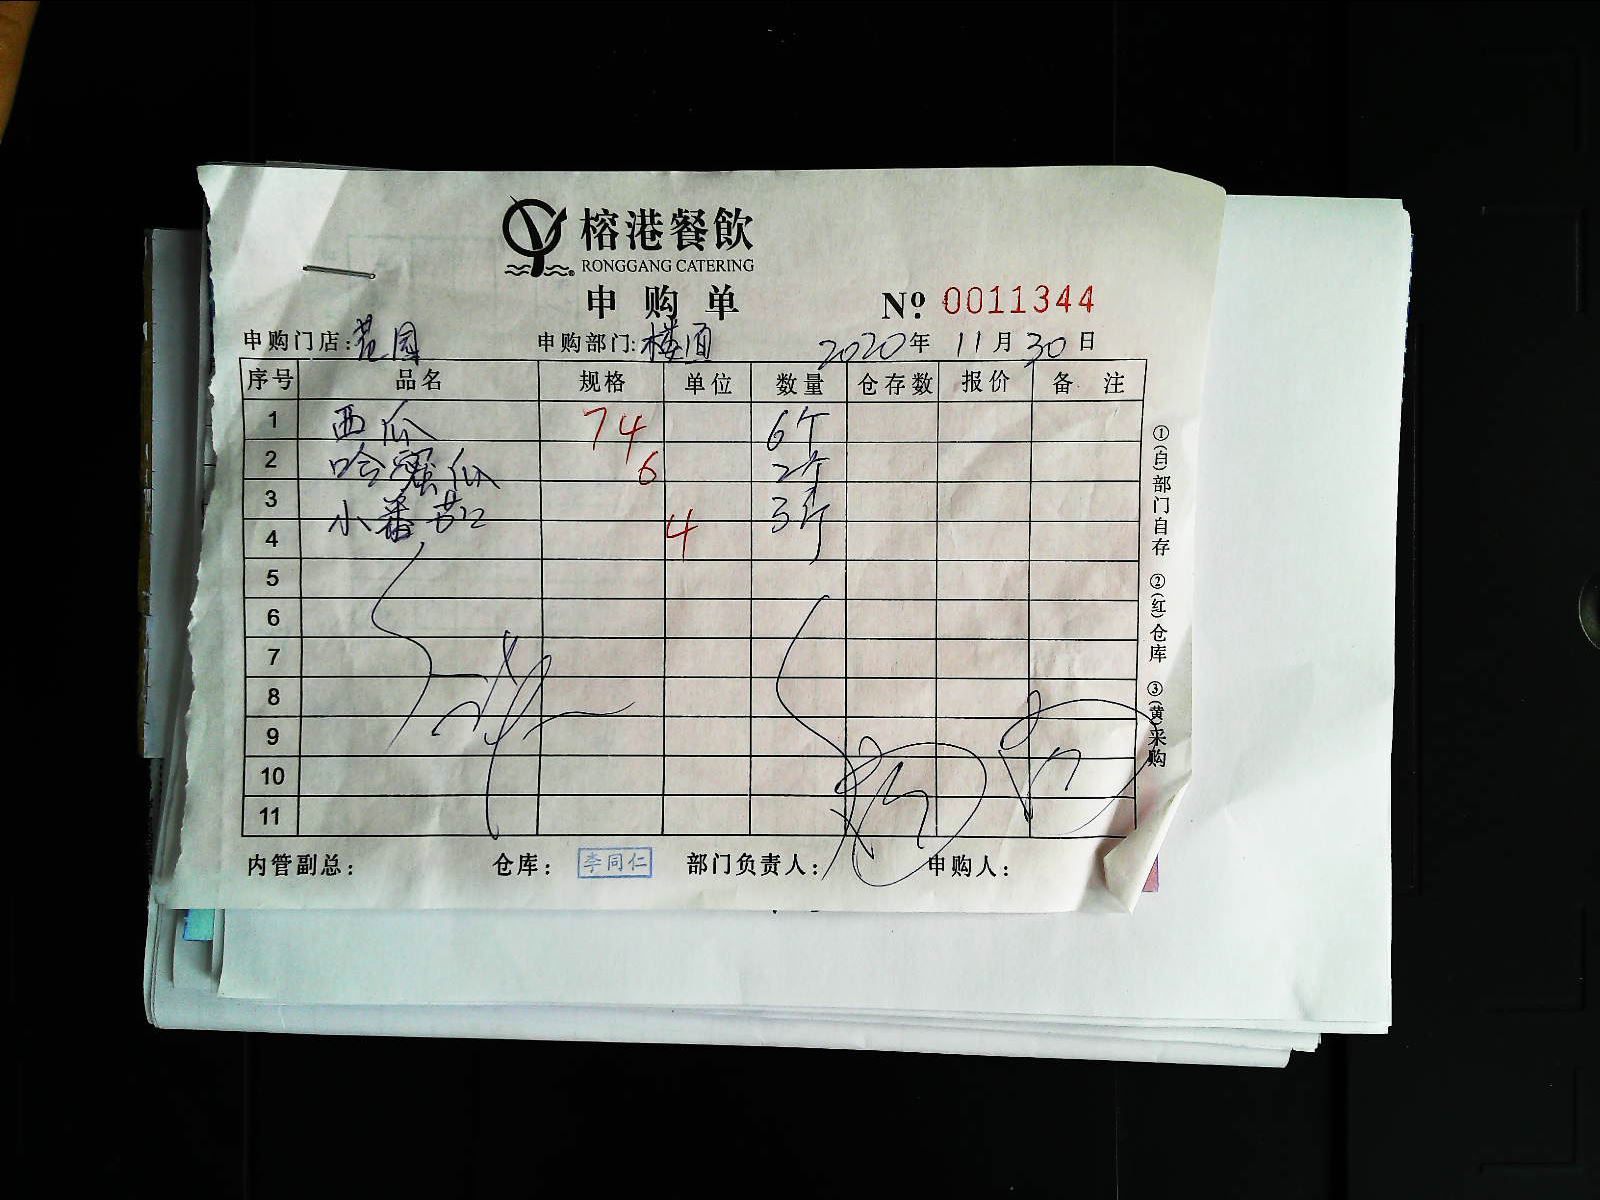 榕港餐飲
RONGGANG CATERING
申购单 Nº: 0011344
申购门店:花园 申购部门:楼面 2020年 11月30日
序号 品名 规格 单位 数量 仓存数 报价 备注
1 西瓜 74 6个
2 哈密瓜 6 2个
3 小番茄 3斤
4 4
5
6
7
8
9
10
11
内管副总: 仓库: 李同仁 部门负责人: 申购人:
①(白)部门自存 ②(红)仓库 ③(黄)采购